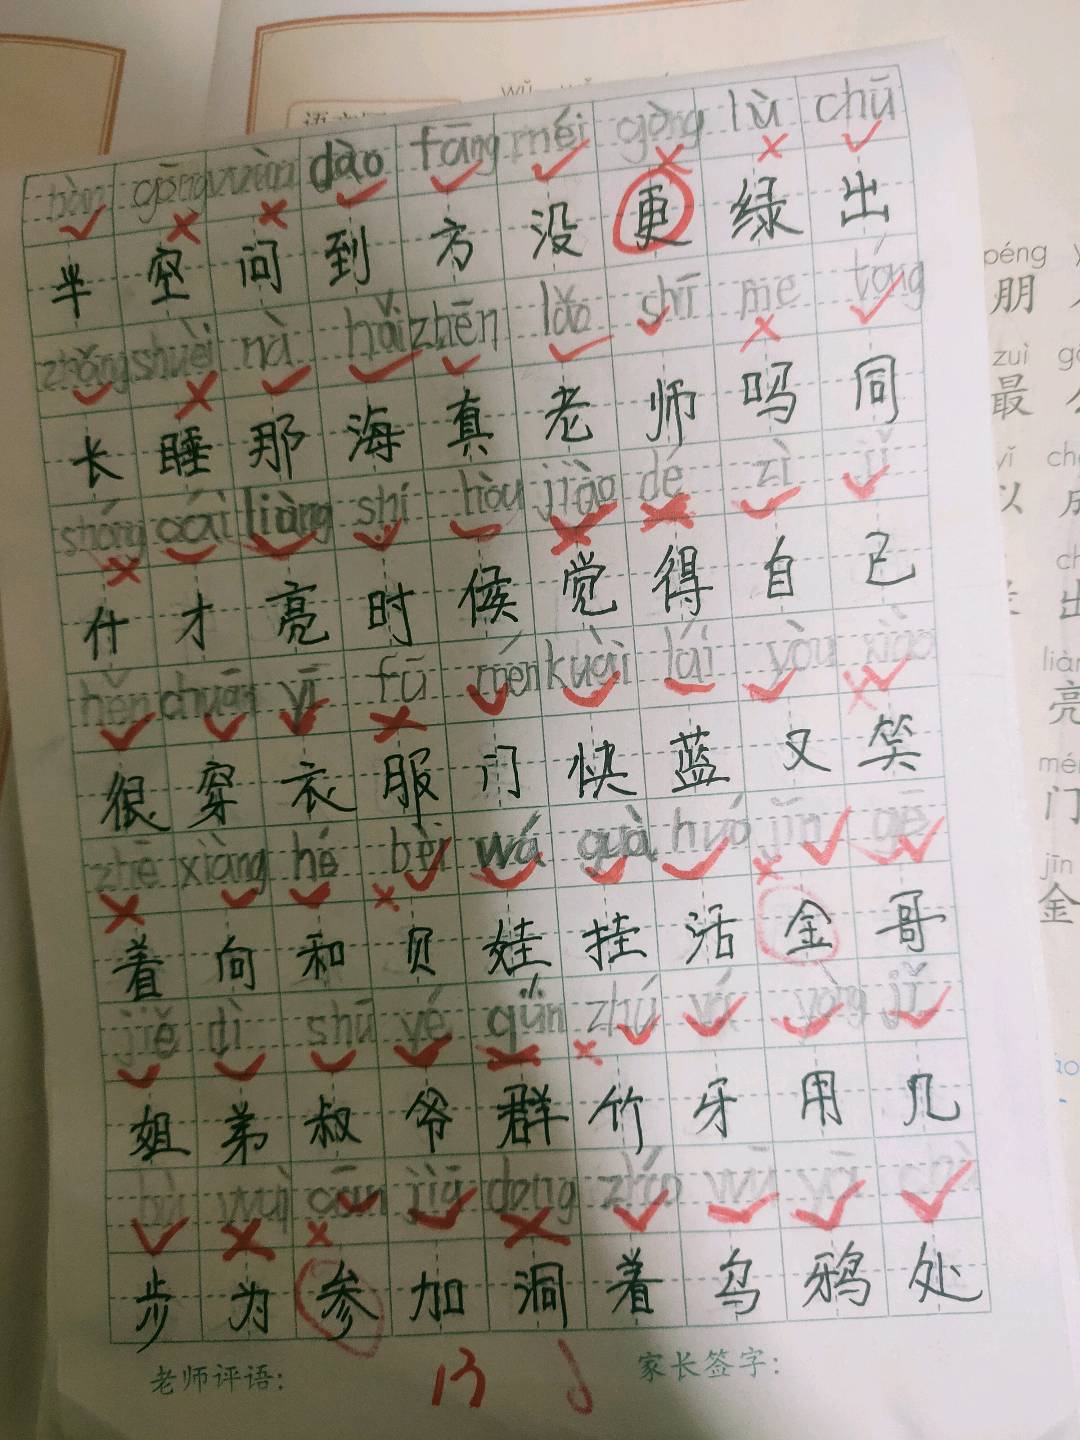 bàn gōng wèn dào fāng méi gòng lù chū
半 空 问 到 方 没 更 绿 出
zhǎng shuèi nà hǎi zhēn lǎo shī me tóng
长 睡 那 海 真 老 师 吗 同
shóng cái liàng shí hòu jiào dé zì jǐ
什 才 亮 时 候 觉 得 自 己
hěn chuān yī fū mén kuài lái yòu xiào
很 穿 衣 服 门 快 蓝 又 笑
zhē xiàng hé bèi wá guà huó jīn gē
着 向 和 贝 娃 挂 活 金 哥
jiě dì shū yé qǘn zhú yá yòng jǐ
姐 弟 叔 爷 群 竹 牙 用 几
bù cān jiā dong zhe wū yā chù
步 为 参 加 洞 着 乌 鸦 处
老师评语:
13
家长签字:
péng
朋
zuì
最
yǐ
以
liàng
亮
mén
门
jīn
金